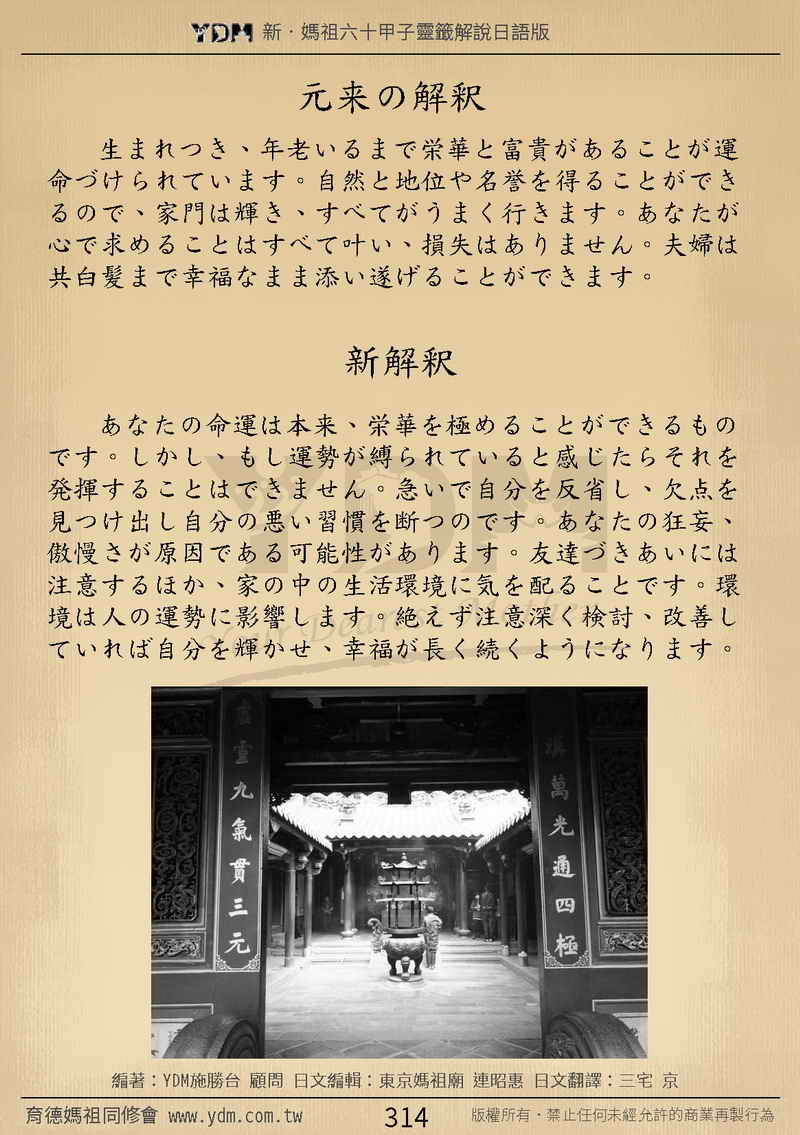 YDM 新・媽祖六十甲子靈籤解說日語版
元来の解釈
生まれつき、年老いるまで栄華と富貴があることが運
命づけられています。自然と地位や名誉を得ることができ
るので、家門は輝き、すべてがうまく行きます。あなたが
心で求めることはすべて叶い、損失はありません。夫婦は
共白髪まで幸福なまま添い遂げることができます。
新解釈
あなたの命運は本来、栄華を極めることができるもの
です。しかし、もし運勢が縛られていると感じたらそれを
発揮することはできません。急いで自分を反省し、欠点を
見つけ出し自分の悪い習慣を断つのです。あなたの狂妄、
傲慢さが原因である可能性があります。友達づきあいには
注意するほか、家の中の生活環境に気を配ることです。環
境は人の運勢に影響します。絶えず注意深く検討、改善し
ていれば自分を輝かせ、幸福が長く続くようになります。
YDM
Your Dearest
靈九氣貫三元
萬光通四極
編著：YDM施勝台 顧問 日文編輯：東京媽祖廟 連昭惠 日文翻譯：三宅 京
育德媽祖同修會 www.ydm.com.tw
314
版權所有・禁止任何未經允許的商業再製行為